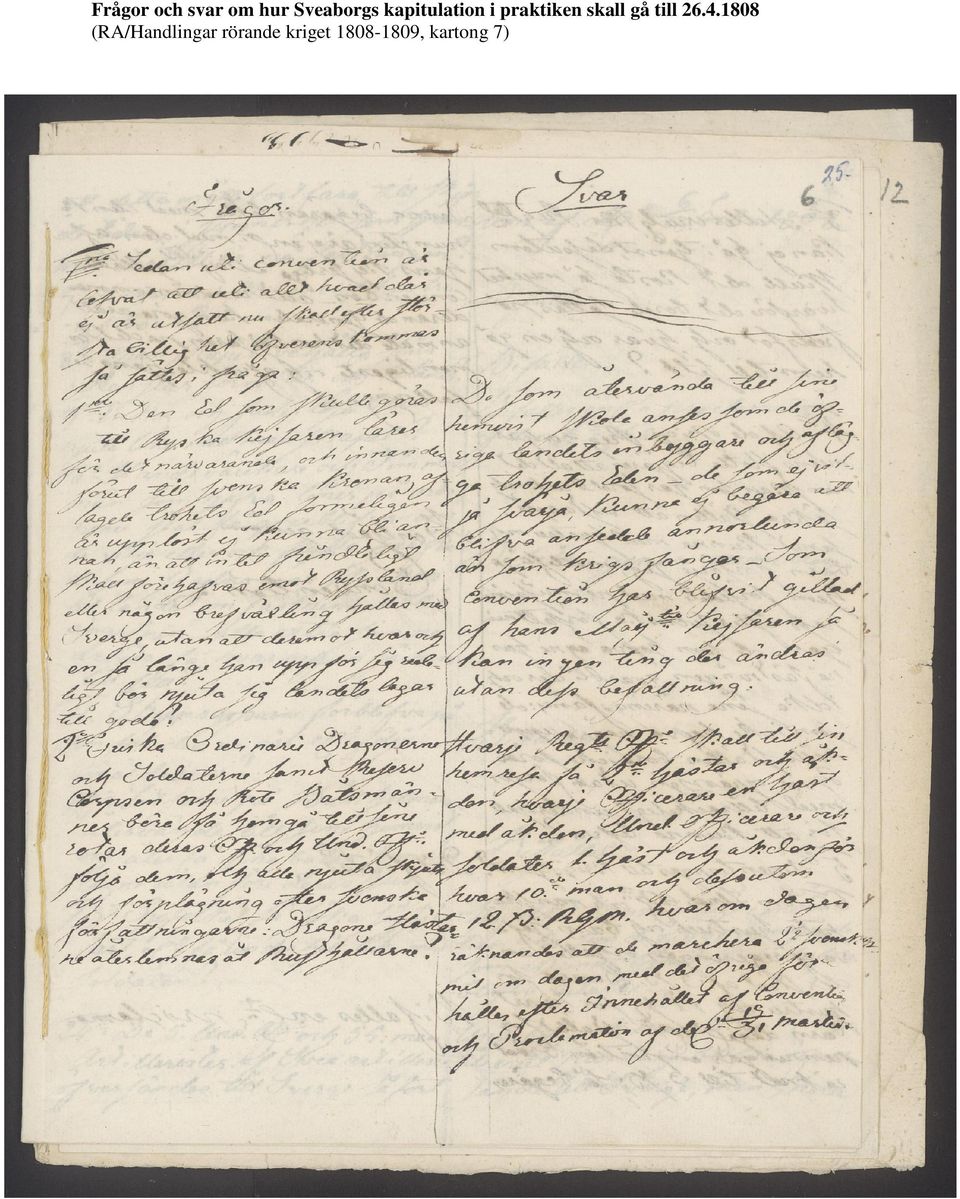 Frågor och svar om hur Sveaborgs kapitulation i praktiken skall gå till 26.4.1808
(RA/Handlingar rörande kriget 1808-1809, kartong 7)
Frågor.
Sedan uti convention är
lofvat att uti allt hvad där
ej är utsatt nu skall efter stör
sta billighet öfverens kommas
så sättes i fråga:
1mo. Den Ed som skulle göras
till Ryska Kejsaren lärer
för det närvarande, och innan den
förut till Svenska Kronan, af-
lagde trohets Ed formeligen
är upplöst ej kunna bli an-
nan, än att intet fiendtligt
skall förehafvas emot Ryssland
eller någon brefväxling hållas med
Sverge, utan att deremot hvar och
en så länge han uppför sig rede-
ligt bör njuta sig landets lagar
till godo?
2do Finska Ordinarie Dragonerne
och Soldaterne samt Reserv
Corpsen och Rote Båtsmän-
ner böra få hemgå till sine
rotar deras Off. och Und. Off.
följa dem, och alle njuta skjuts
och förplägning efter Svenska
författningarne: Dragone Hästar-
ne återlemnas åt Rusthållarne?
Svar
25.
6
12
De som återvända till sine
hemvist skole anses som de öf-
rige landets inbyggare och afläg-
ga trohets Eden – de som ej vil-
ja svärja, kunna ej begära att
blifva ansedde annorlunda
än som Krigs fångar – Som
Convention har blifvit gillad
af hans Maij:ts Kejsaren så
kan ingen ting der ändras
utan dess befallning.
Hvarje Regts Off. skall till sin
hemresa få 2ne hästar och åk-
don, hvarje Officerare en häst
med åkdon, Und. Officerare och
soldater 1. häst och åkdon för
hvar 10.de man och dessutom
12 β. Rgm. hvarom dagen
räknandes att de marchera 2 Svensk
mil om dagen med det öfrige för-
hålles efter Innehållet af Convention
och Proclamation af den 19/31 Martii.